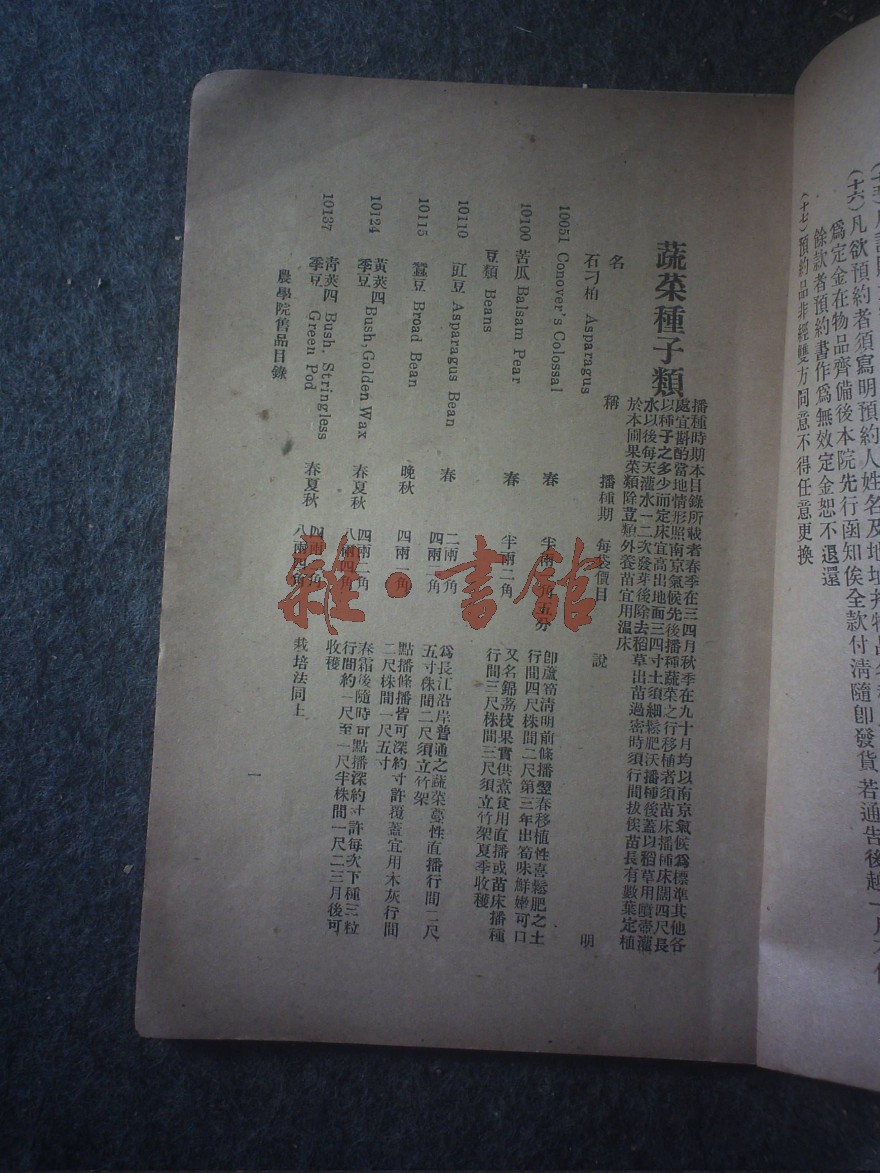 (十六)凡欲預約者須寫明預約人姓名及地址
爲定金在物品齊備後本院先行函知俟全款付清隨卽發貨若通告後越一月不
餘款者預約書作爲無效定金恕不退還
(十七)預約品非經雙方同意不得任意更換
蔬菜種子類
播種時期本目錄所載者春季在三四月秋季在九十月均以南京氣候爲標準其他各
處宜斟酌當地情形照南京氣候先後播種蔬菜之行移植者須苗床播種床闊四尺長
以種子之多少而定床宜高出地面三四寸土須細鬆肥沃播種後蓋以稻草用噴壺灌
水以後每天灌水一二次發芽後除去稻草出苗過密時須行間拔俟苗長有數葉定植
於本圃果菜類除荳類外養苗宜用溫床
名稱 播種期 每袋價目 說明
石刁柏 Asparagus
10051 Conover's Colossal 春 半兩一角五分 卽蘆筍淸明前條播翌春移植性喜鬆肥之土
行間四尺株間二尺第三年出筍味鮮嫩可口
10100 苦瓜 Balsam Pear 春 半兩二角 又名錦荔技果實供煮食用直播或苗床播種
行間三尺株間三尺須立竹架夏季收穫
豆類 Beans
10110 豇豆 Asparagus Bean 春 二兩一角 爲長江沿岸普通之蔬菜蔓性直播行間二尺
四兩二角 五寸株間二尺須立竹架
10115 蠶豆 Broad Bean 晚秋 四兩一角 點播條播皆可深約寸許覆蓋宜用木灰行間
二尺株間一尺五寸
10124 黃莢四季豆 Bush, Golden Wax 春夏秋 四兩二角 春霜後隨時可點播深約寸許每次下種三粒
八兩四角 行間約一尺至一尺半株間一尺二三月後可
收穫
10137 靑莢四季豆 Bush, Stringless Green Pod 春夏秋 四兩二角
八兩四角 栽培法同上
農學院售品目錄
一
雜·書館